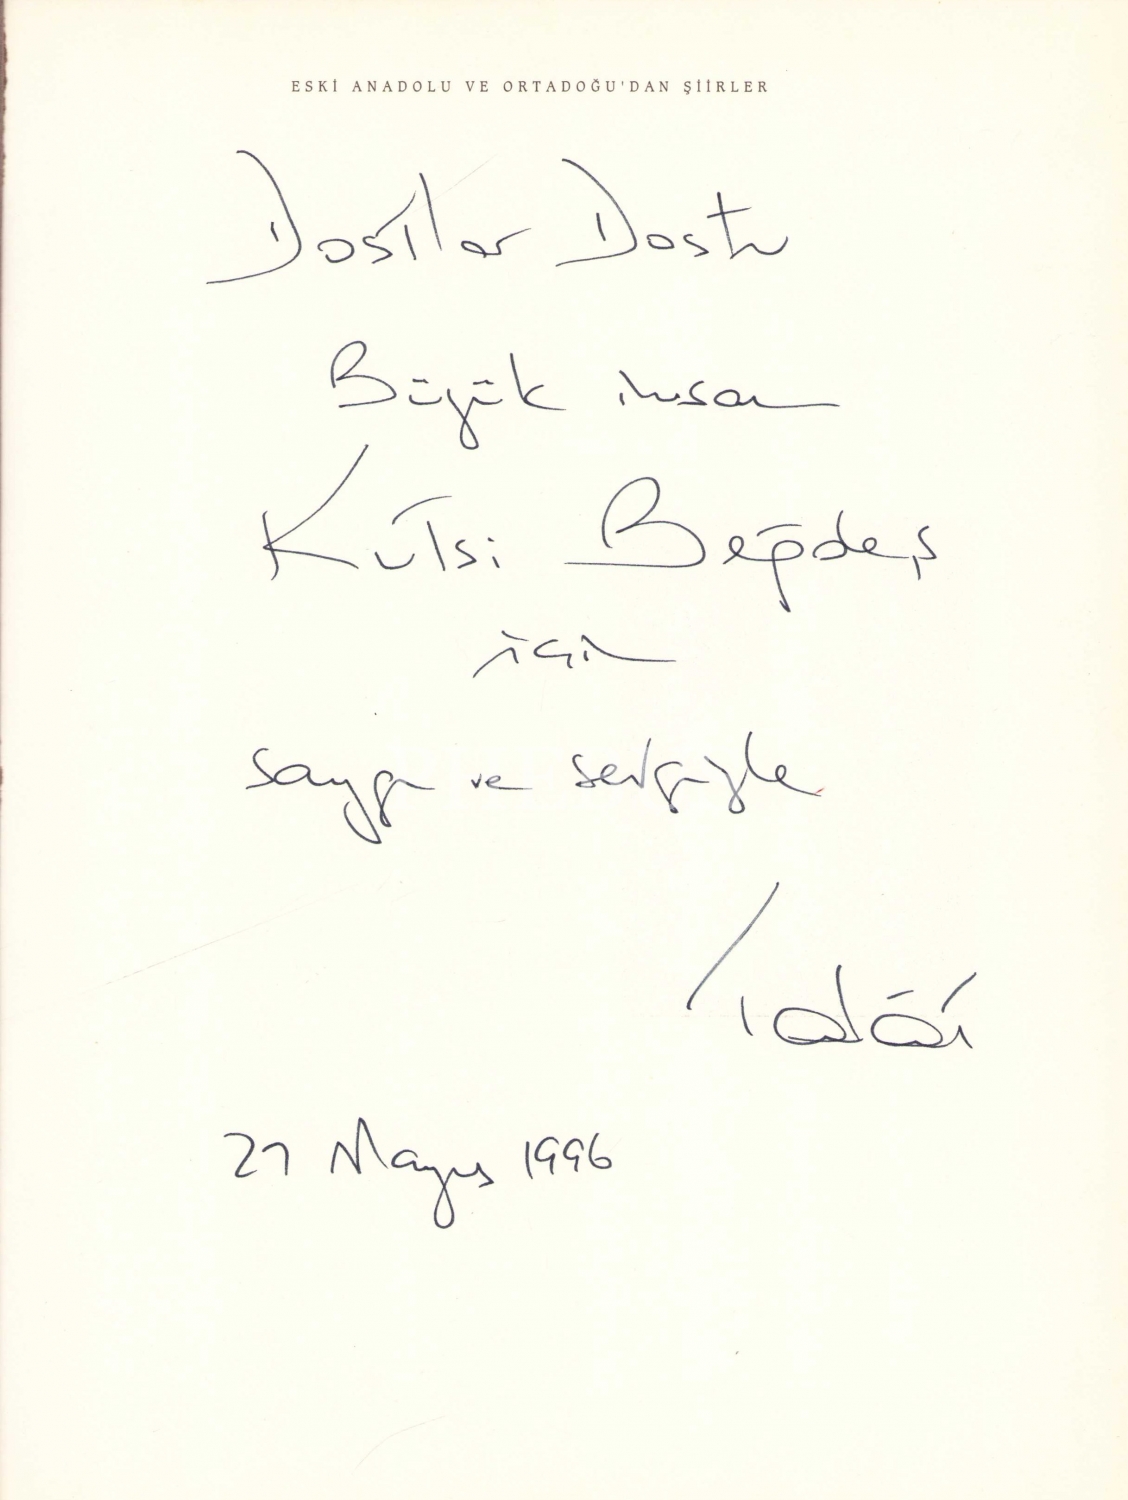 ESKİ ANADOLU VE ORTADOĞU'DAN ŞİİRLER
Dostlar Dostu
Büyük insan
Kutsi Beğdeş
için
saygı ve sevgiyle
Talât
27 Mayıs 1996